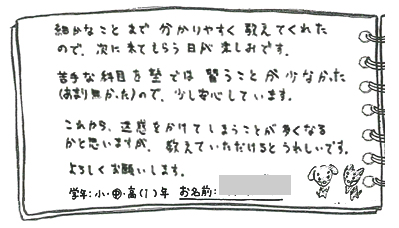 細かなことまで分かりやすく教えてくれた
ので、次に来てもらう日が楽しみです。
苦手な科目を塾では習うことが少なかった
(あまり無かった)ので、少し安心しています。
これから、迷惑をかけてしまうことが多くなる
かと思いますが、教えていただけるとうれしいです。
よろしくお願いします。
学年:小・中・高(1)年 お名前: